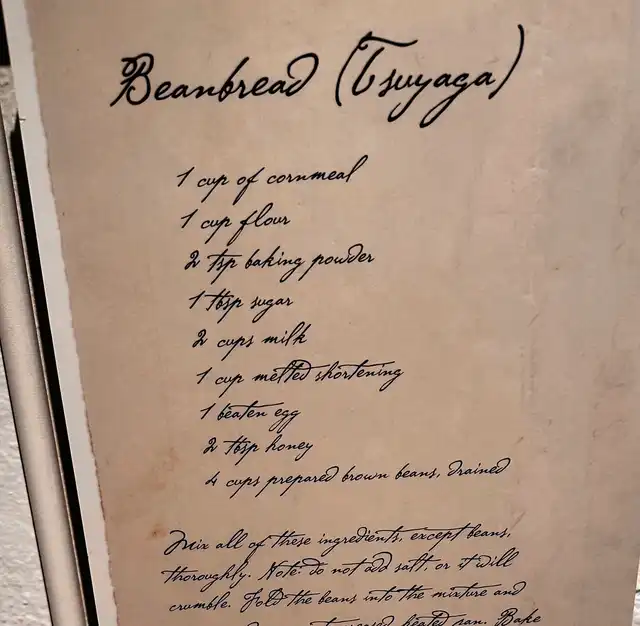 Beanbread (Tsuyaga)
1 cup of cornmeal
1 cup flour
2 tsp baking powder
1 tbsp sugar
2 cups milk
1 cup melted shortening
1 beaten egg
2 tbsp honey
4 cups prepared brown beans, drained
Mix all of these ingredients, except beans,
thoroughly. Note: do not add salt, or it will
crumble. Fold the beans into the mixture and
greased heated pan. Bake